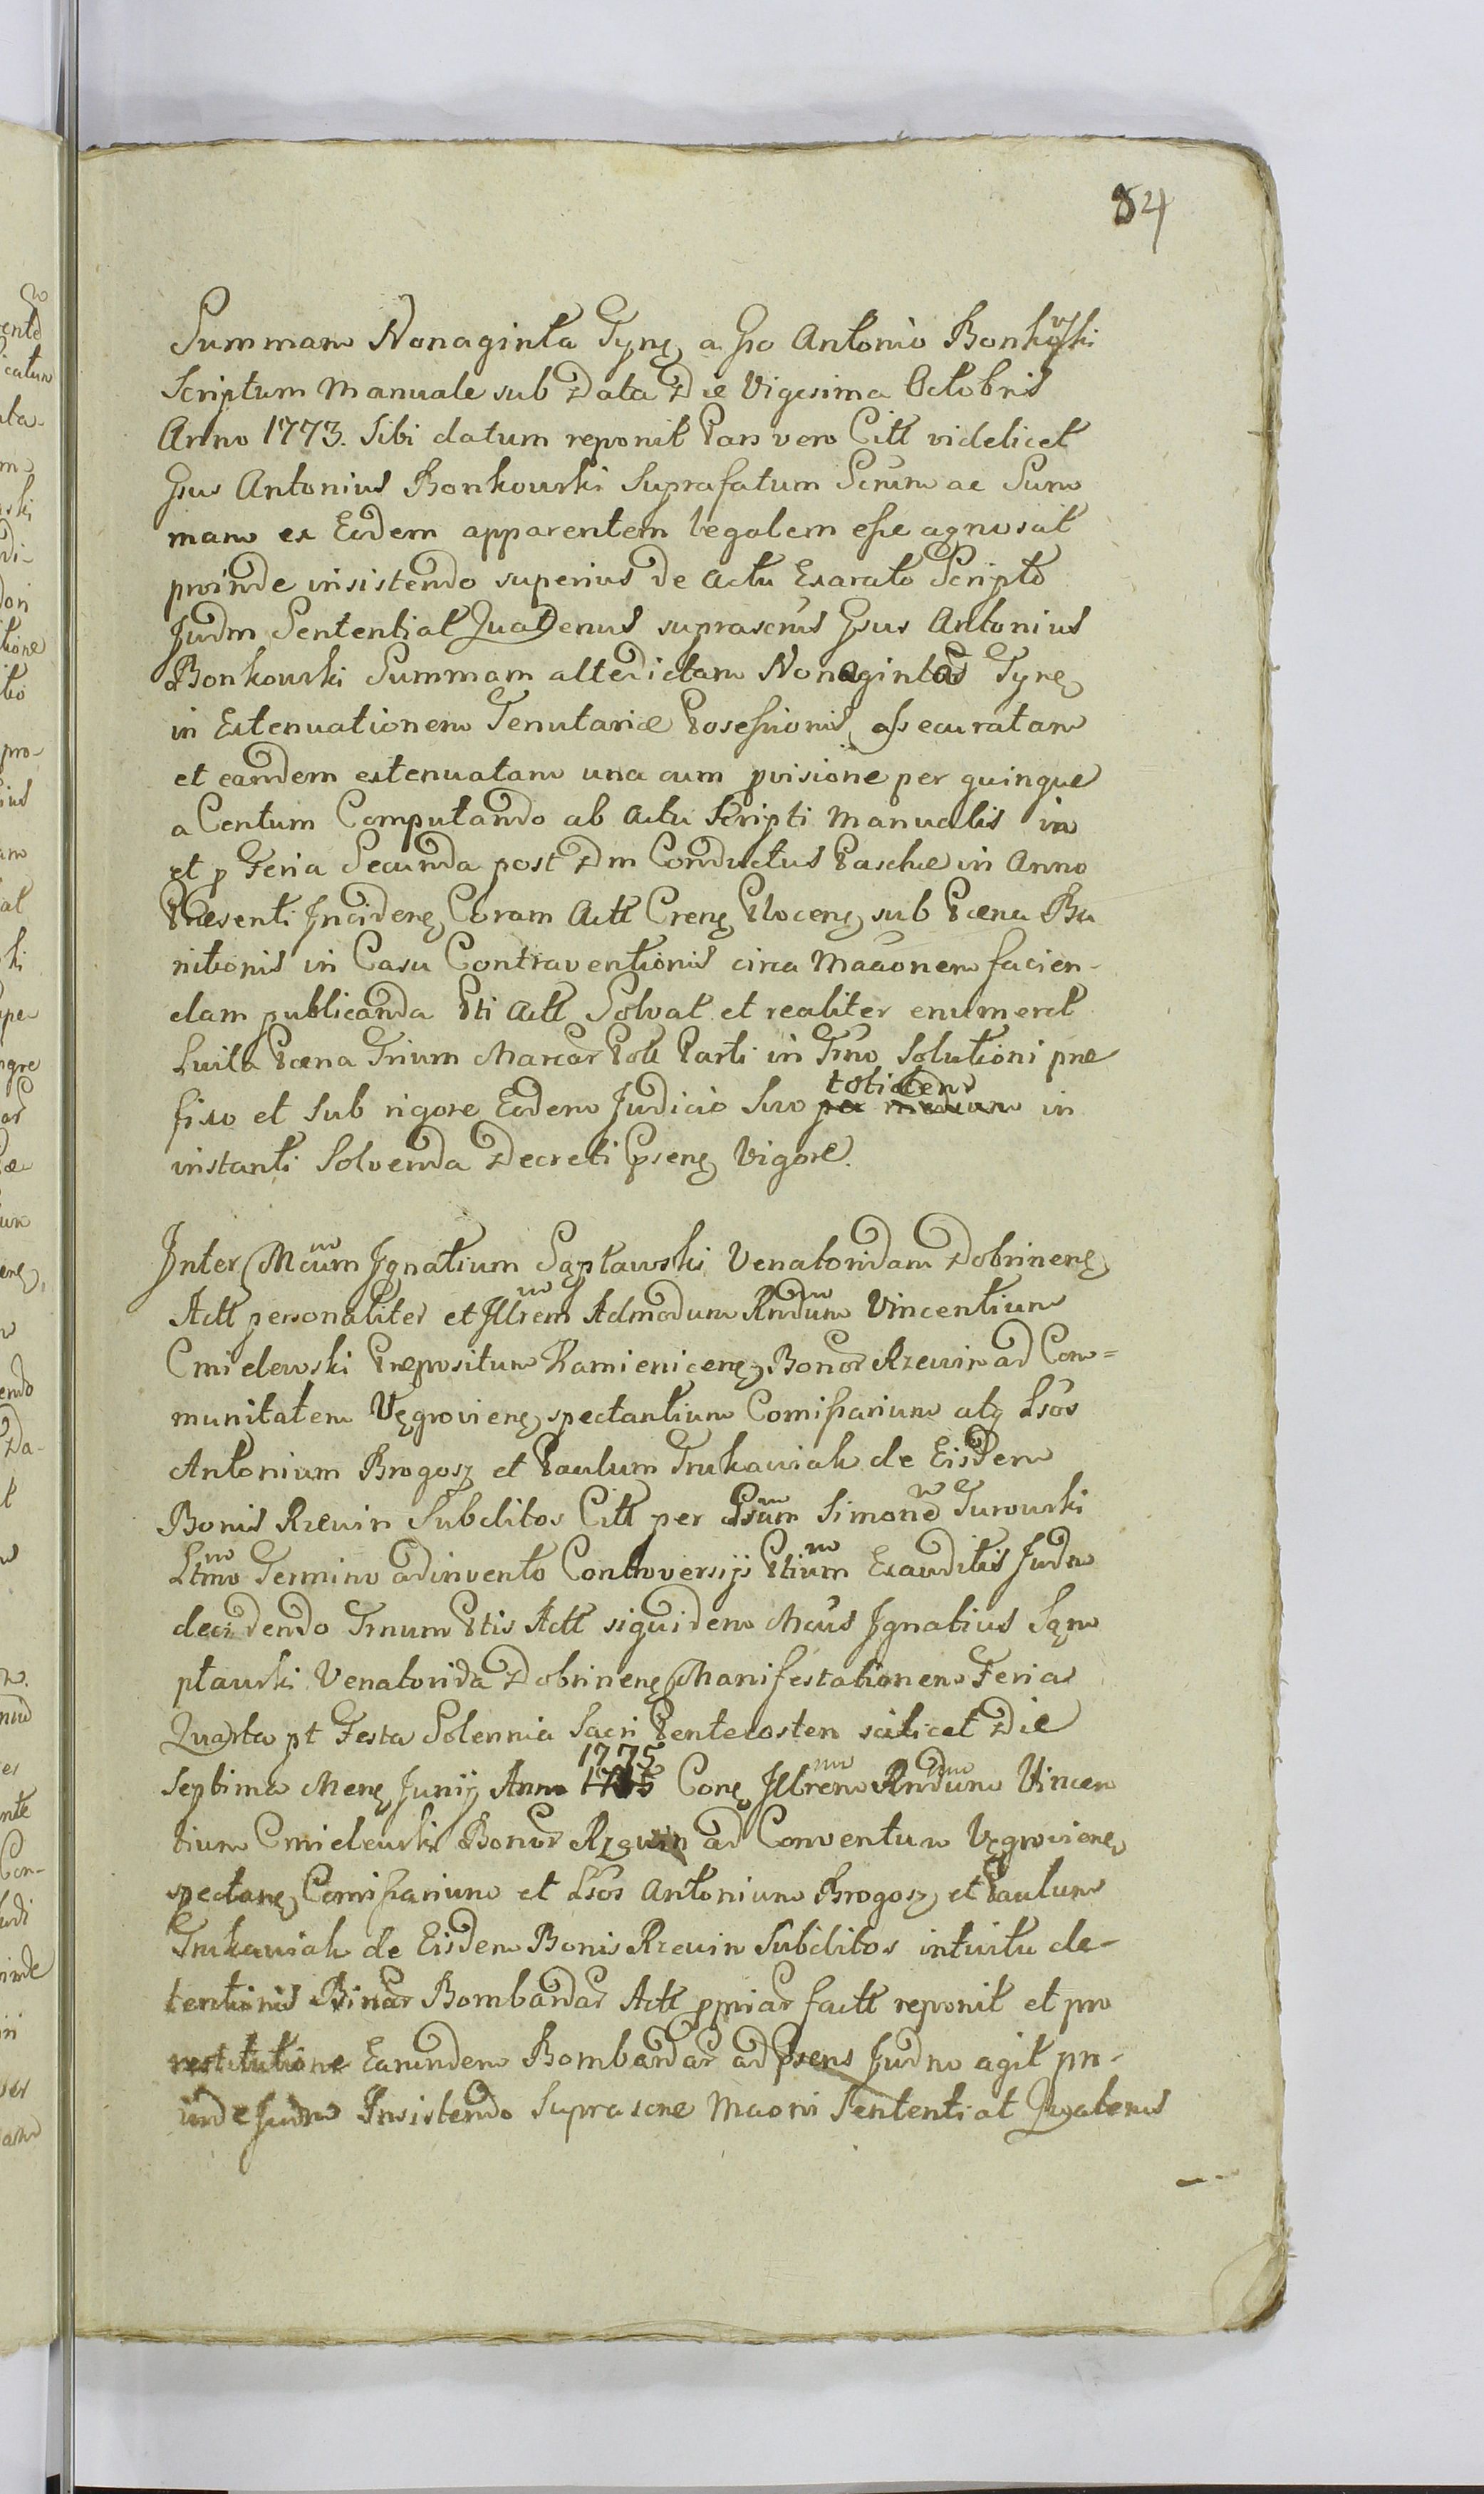 84
Summam Nonaginta Tynę a Gso Antonio Bonkowski
Scriptum Manuale sub Data Die Vigesima Octobris
Anno 1773. Sibi datum reponit Pars vero Citt videlicet
Gsus Antonius Bonkowski Suprafatum Scrum ac Sum
mam ex Eodem apparentem legalem esse agnoscit
proinde insistendo superius de Actu Exarato Scripto
Judm Sententiat Quatenus suprascrus Gsus Antonius
Bonkowski Summam altedictam Nonaginta Tynę
in Extenuationem Tenutariæ Possessionis assecuratam
et eandem extenuatam una cum pvisione per quinque
a Centum Computando ab Actu Scripti Manualis in
et p Feria Secunda post Dm Conductus Paschæ in Anno
Præsenti Incidenę Coram Actt Crenę Plocenę sub Pœna Ba
nitionis in Casu Contraventionis circa Maaonem facien-
dam publicanda Pti Actt Solvat et realiter enumeret
Luita Pœna Trium Marcar Pole Parti in Trno Solutioni præ
fixo et Sub rigore Eodem Judicio Suo per medium totidem in
instanti Solvenda Decreti Psenę Vigore.
Inter Mcum Ignatium Sąptawski Venatoridam Dobrinenę
Actt personaliter et Illrem Admodum Rndum Vincentium
Cmielewski Præpositum Kamienicenę Bonor Rzewin ad Com=
munitatem Vęgrovienę spectantium Comissarium atq Lsos
Antonium Brogosz et Paulum Trukawiak de Eisdem
Bonis Rzewin Subditos Citt per Gsum Simone Turowski
Ltmo Termino adinvento Controversijs Ptium Exauditis Judm
decidendo Trnum Ptis Actt siquidem Mcus Ignatius Sąm
ptawski Venatorida Dobrinenę Manifestationem Feria
Quarta pt Festa Solennia Sacri Pentecosten scilicet Die
Septima Menę Junij Anno 1775 Conę Illrem Rndum Vincen
tium Cmielewski Bonor Rzewin ad Conventum Vęgrovienę
spectanę Comissarium et Lsos Antonium Brogosz et Paulum
Trukawiak de Eisdem Bonis Rzewin Subditos intuitu de-
tentionis Binar Bombardar Actt ppriar factt reponit et pro
restitutione Earundem Bombardar ad Psens Judm agit pro-
inde Judm Insistendo Suprascrę Maoni Sententiat Quatenus